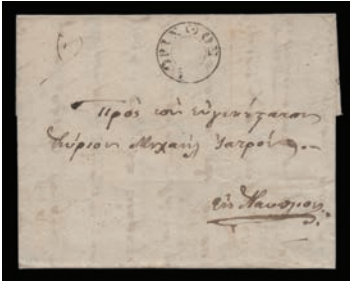 ΚΟΡΙΝΘΟΣ
Πρὸς τὸν εὐγενέστατον
Κύριον Μιχαὴλ Ἰατρόν
εἰς Ναύπλιον